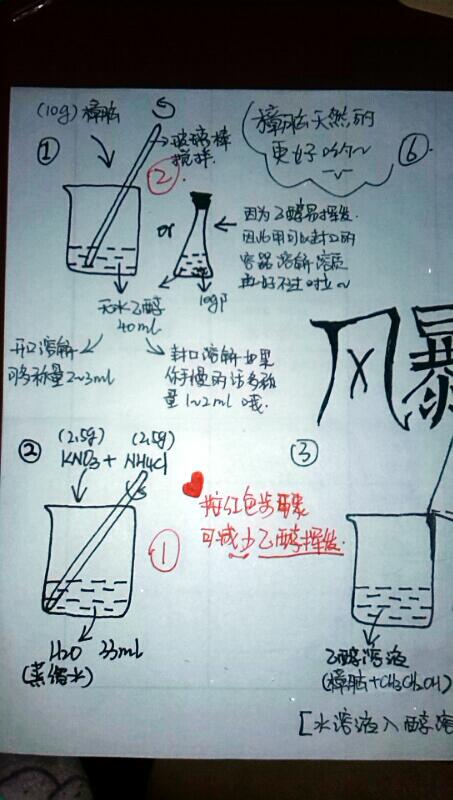 (10g) 樟脑
①
玻璃棒
搅拌.
②
樟脑天然的
更好哟~
⑥
or
因为乙醇易挥发.
因此用可以封口的
容器溶解溶质
再好不过啦~
无水乙醇
40ml
10g
开口溶解
可多称量2~3ml
封口溶解如果
你手慢的话多称
量1~2ml哦.
风暴
②
(2.5g) (2.5g)
KNO3 + NH4Cl
①
按红色步骤
可减少乙醇挥发.
H2O 33ml
(蒸馏水)
③
乙醇溶液
(樟脑+CH3CH2OH)
[水溶液入醇溶